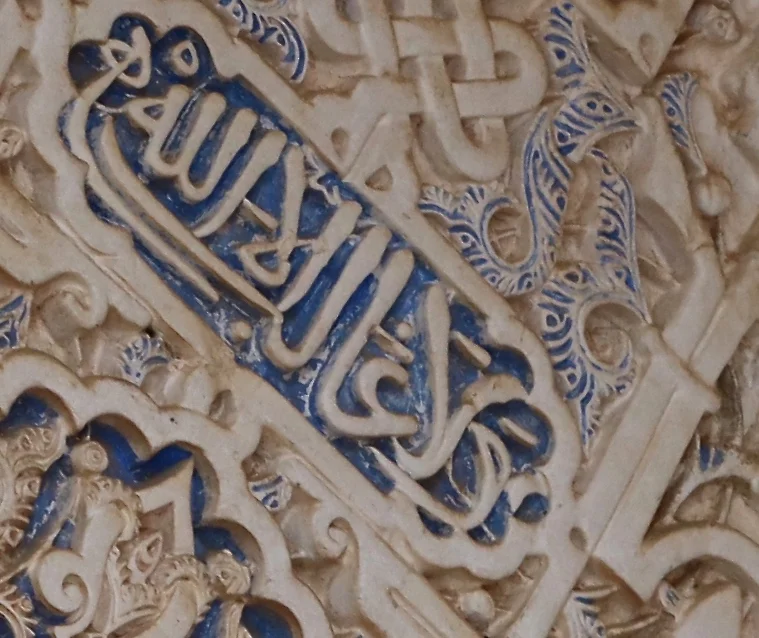 ولا غالب إلا الله